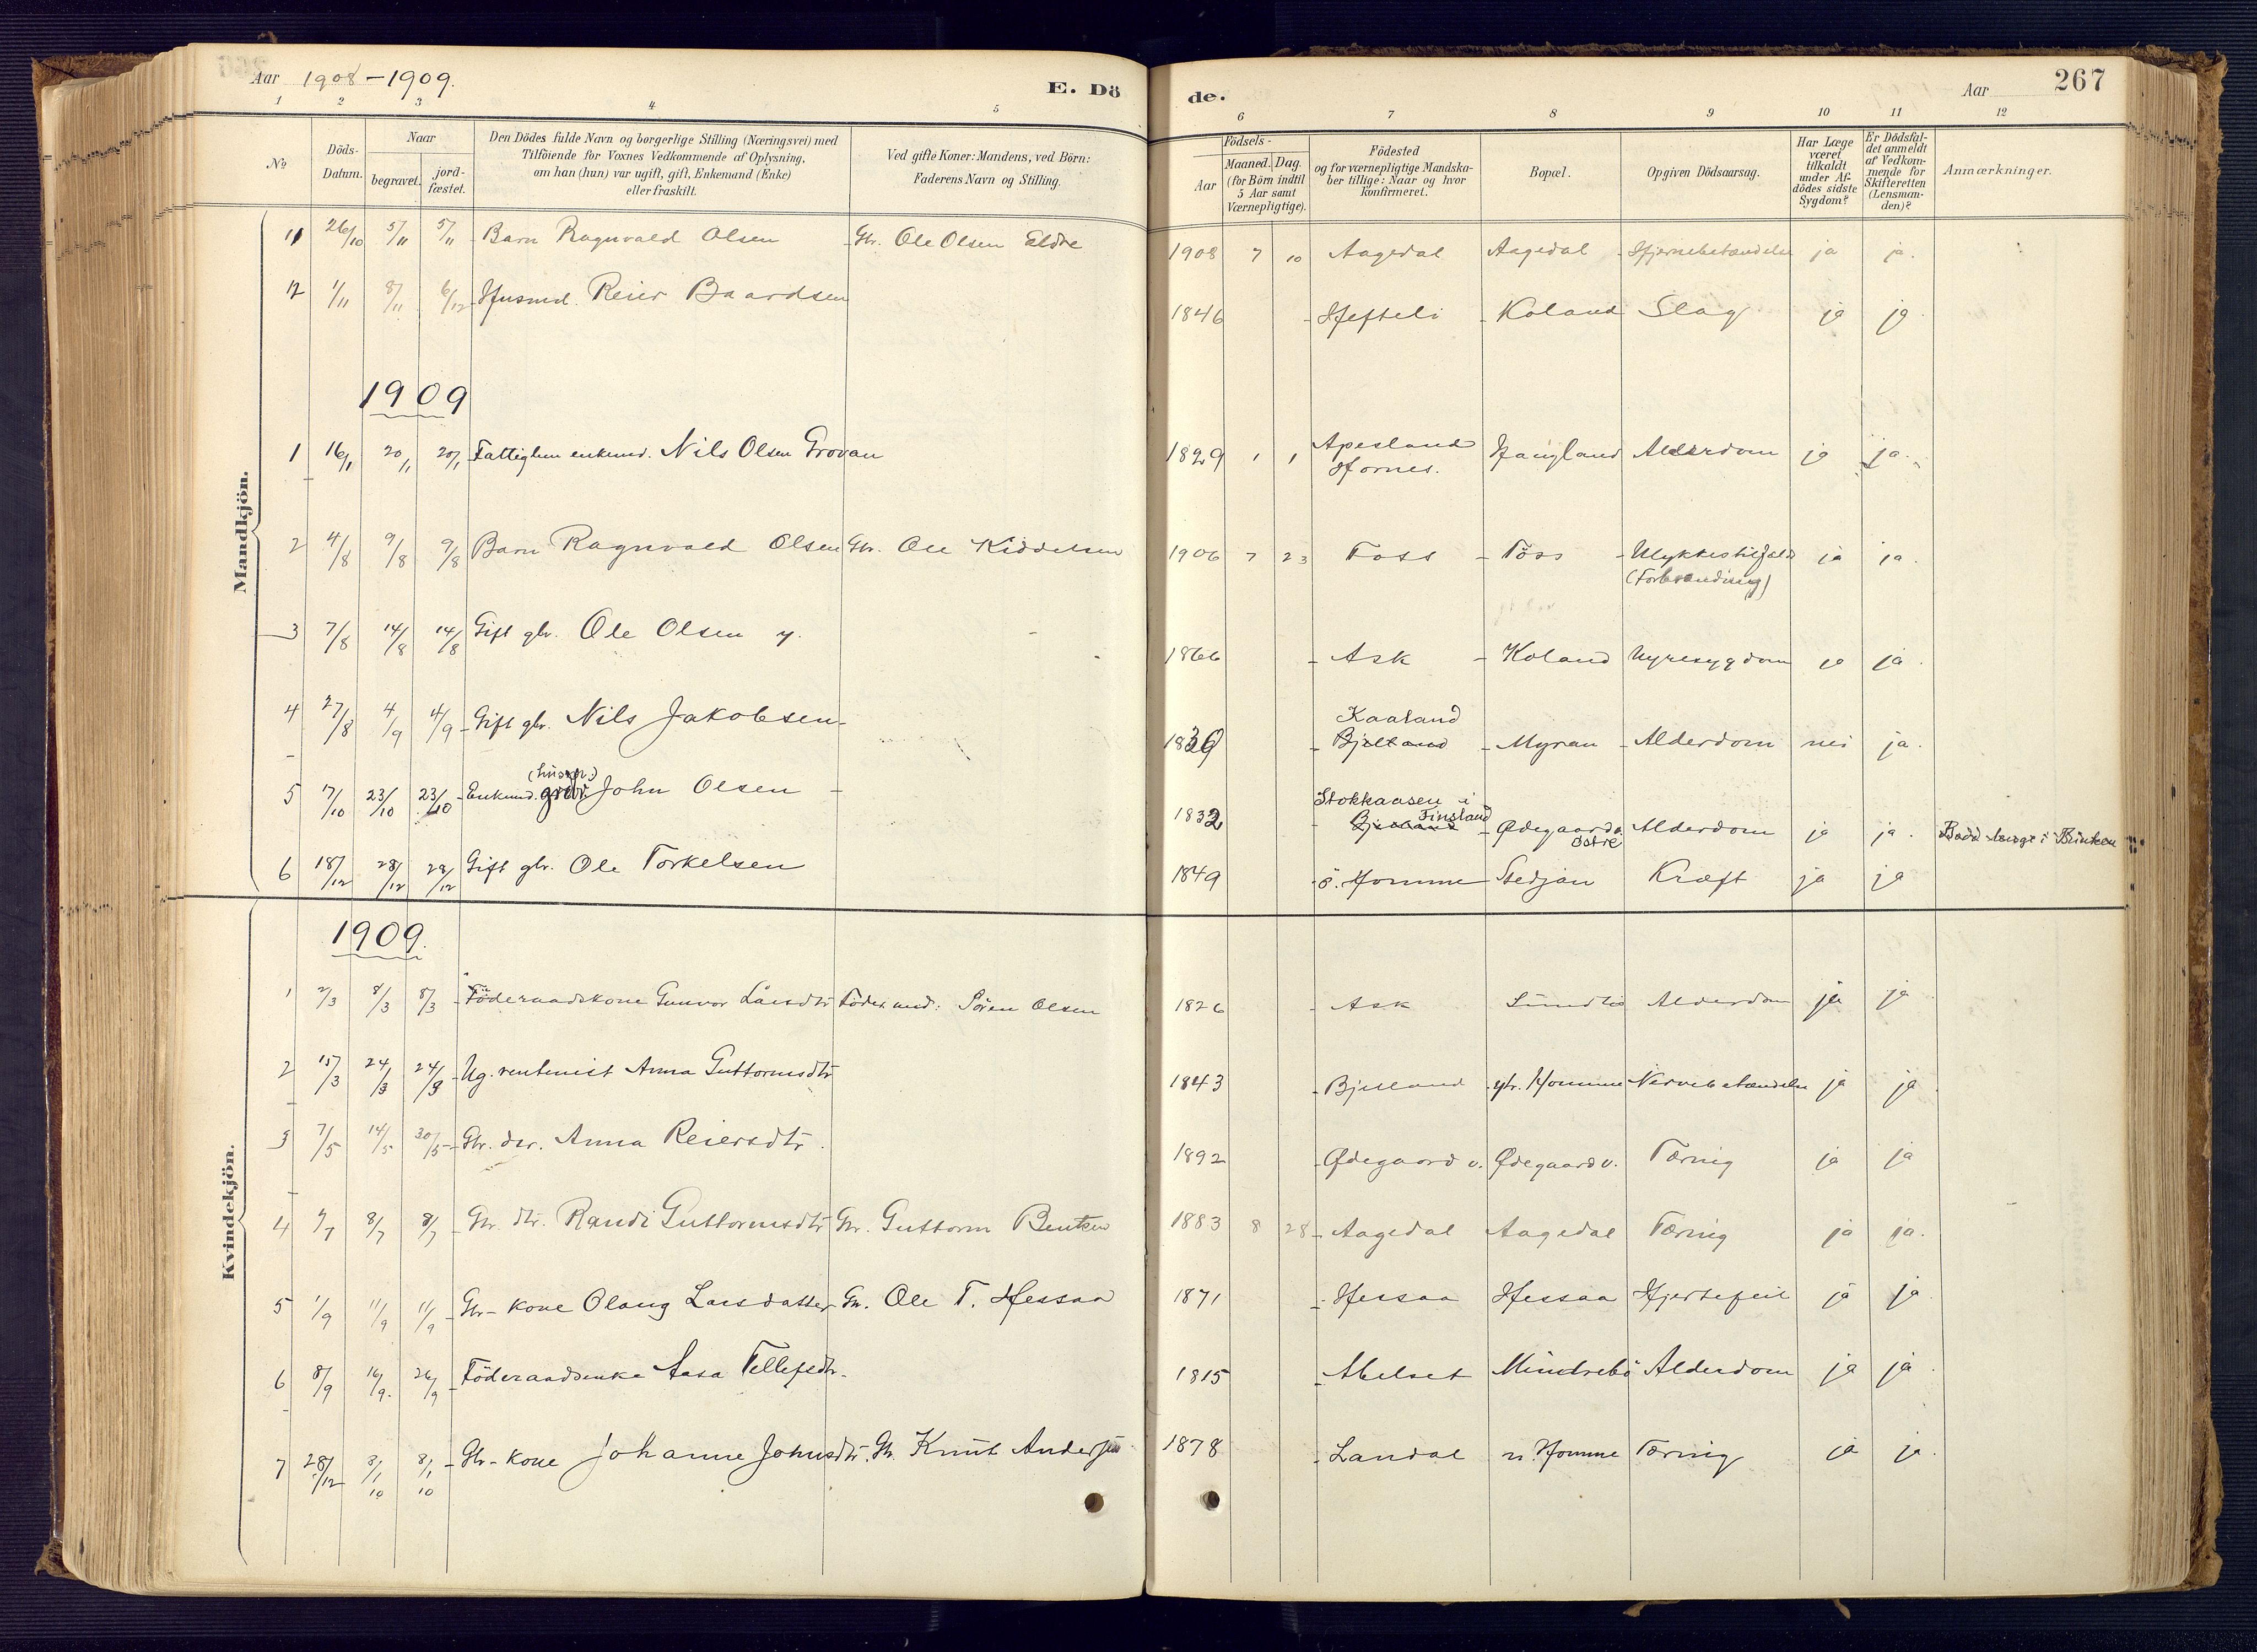 Aar 1908-1909.
E. Dö
de.
Aar
267
1 2 3 4 5 6 7 8 9 10 11 12
No
Döds-Datum.
Naar
begravet.
jord-fæstet.
Den Dödes fulde Navn og borgerlige Stilling (Næringsvei) med
Tilföiende for Voxnes Vedkommende af Oplysning,
om han (hun) var ugift, gift, Enkemand (Enke)
eller fraskilt.
Ved gifte Koner: Mandens, ved Börn:
Faderens Navn og Stilling.
Födsels-
Aar
Maaned. Dag.
(for Börn indtil
5 Aar samt
Værnepligtige).
Födested
og for værnepligtige Mandska-
ber tillige: Naar og hvor
konfirmeret.
Bopæl.
Opgiven Dödsaarsag.
Har Læge
været
tilkaldt
under Af-
dödes sidste
Sygdom?
Er Dödsfal-
det anmeldt
af Vedkom-
mende for
Skifteretten
(Lensman-
den)?
Anmærkninger.
Mandkjön.
11 26/10 5/11 5/11 Barn Ragnvald Olsen Gbr. Ole Olsen Eldre 1908 7 10 Aagedal Aagedal Hjernebetændelse ja ja.
12 1/11 8/11 6/12 Husmd. Reier Baardsen 1846 Hefteli Koland Slag ja ja
1909
1 16/1 20/1 20/1 Fattiglem enkemd. Nils Olsen Grovan 1829 1 1 Apesland Hornes. Haugland Alderdom ja ja.
2 4/8 9/8 9/8 Barn Ragnvald Olsen Gbr. Ole Kiddelsen 1906 7 23 Foss Foss Ulykkestilfæld (Forbrænding) ja ja.
3 7/8 14/8 14/8 Gift gbr. Ole Olsen y. 1866 Ask Koland Nyresygdom ja ja.
4 27/8 4/9 4/9 Gift gbr. Nils Jakobsen 1839 Kaaland Bjelland Myran Alderdom nei ja.
5 17/10 23/10 23/10 Enkemd. (huskr.) gbr. John Olsen 1832 Stokkaasen i Finsland Bjelland Ødegaard østre Alderdom ja ja. Bodd længe i Brinken
6 18/12 28/12 28/12 Gift gbr. Ole Torkelsen 1849 ö. Homme Stedjan Kræft ja ja
Kvindekjön.
1909.
1 2/3 8/3 8/3 Föderaadskone Gunvor Larsdtr Föder.md: Sören Olsen 1826 Ask Sundli Alderdom ja ja
2 15/3 24/3 24/3 Ug. rentenist Anna Guttormsdtr 1843 Bjelland ytr. Homme Nervebetændelse ja ja
3 7/5 14/5 30/5 Gbr. dtr. Anna Reiersdtr. 1892 Ødegaard v. Ødegaard v. Tæring ja ja
4 /7 8/7 8/7 Gbr. dtr. Randi Guttormsdtr Gbr. Guttorm Bentsen 1883 8 28 Aagedal Aagedal Tæring ja ja.
5 1/9 11/9 11/9 Gbr-kone Olaug Larsdatter Gbr. Ole T. Hessaa 1871 Hessaa Hessaa Hjertefeil ja ja
6 8/9 16/9. 26/9 Föderaadsenke Aasa Tellefsdtr. 1815 Abelset Mindrebö Alderdom ja ja.
7 28/12 8/1 10 8/1 10 Gbr-kone Johanne Johnsdtr. Gb. Knut Andersen 1878 Landal n. Homme Tæring ja ja.